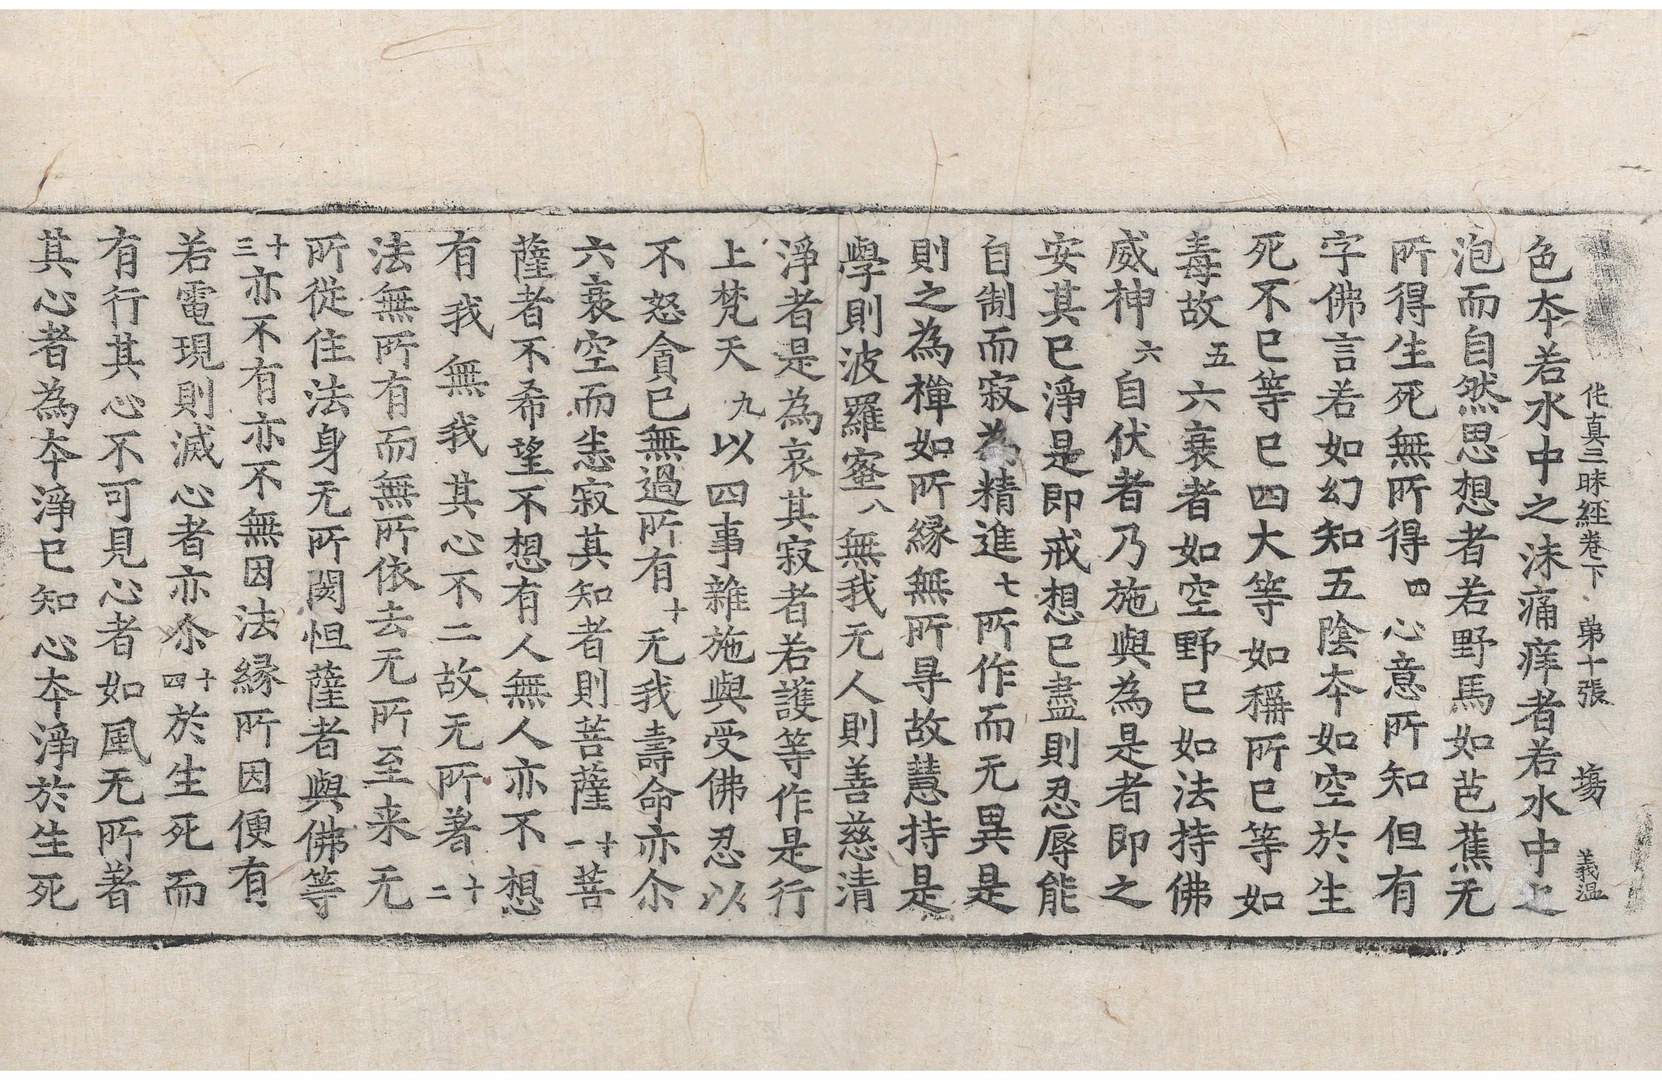 伅真三昧經卷下 第十張 塲 義温
色夲若水中之沫痛痒者若水中之
泡而自然思想者若野馬如芭蕉无
所得生死無所得四心意所知但有
字佛言若如幻知五陰夲如空於生
死不已等已四大等如稱所已等如
毒故五六衰者如空野已如法持佛
威神六自伏者乃施與為是者即之
安其已淨是即戒想已盡則忍辱能
自制而寂為精進七所作而无異是
則之為禪如所縁無所㝷故慧持是
學則波羅蜜八無我无人則善慈清
淨者是為哀其寂者若護等作是行
上梵天九以四事雜施與受佛忍以
不怒貪已無過所有十无我壽命亦尒
六衰空而恙寂其知者則菩薩十一菩
薩者不希望不想有人無人亦不想
有我無我其心不二故无所著十二
法無所有而無所依去无所至来无
所從住法身无所罣怛薩者與佛等
十三亦不有亦不無因法縁所因便有
若電現則滅心者亦尒十四於生死而
有行其心不可見心者如風无所著
其心者為夲淨已知心夲淨於生死